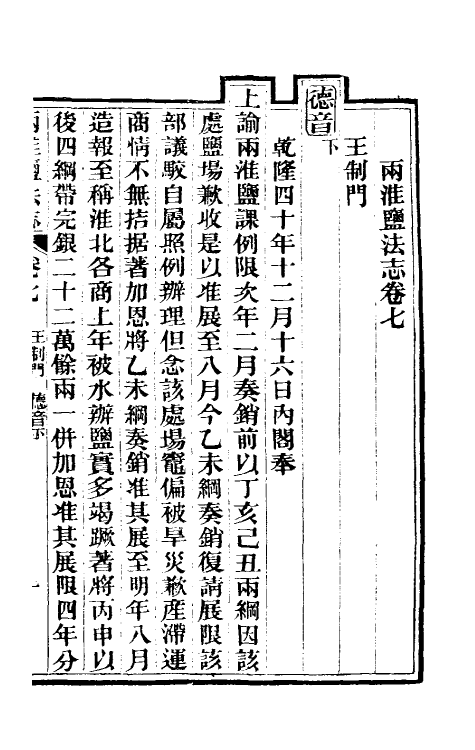 兩淮鹽法志卷七
王制門
德音下
乾隆四十年十二月十六日內閣奉
上諭兩淮鹽課例限次年二月奏銷前以丁亥己丑兩綱因該
處鹽場歉收是以准展至八月今乙未綱奏銷復請展限該
部議駮自屬照例辦理但念該處場竈偏被旱災歉産滯運
商情不無拮据著加恩將乙未綱奏銷准其展至明年八月
造報至稱淮北各商上年被水辦鹽實多竭蹶著將丙申以
後四綱帶完銀二十二萬餘兩一併加恩准其展限四年分
兩淮鹽法志 卷七 王制門 德音下 一